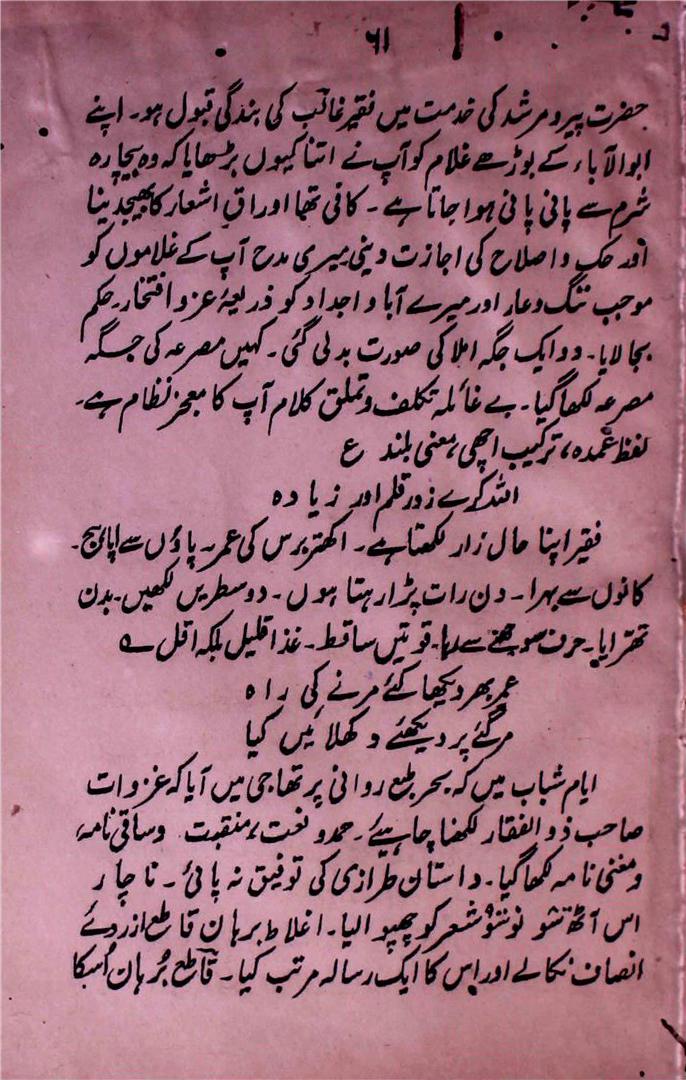 ۶۱
حضرت پیر و مرشد کی خدمت میں فقیر غالب کی بندگی قبول ہو۔ اپنے
ابوالآباء کے بوڑھے غلام کو آپ نے اتنا کیوں بڑھایا کہ وہ بیچارہ
شرم سے پانی پانی ہوا جاتا ہے۔ کافی تھا اوراقِ اشعار کا بھیجدینا
اور حک و اصلاح کی اجازت دینی میری مدح آپ کے غلاموں کو
موجب ننگ و عار اور میرے آبا و اجداد کو ذریعۂ عز و افتخار۔ حکم
بجا لایا۔ دو ایک جگہ املا کی صورت بدلی گئی۔ کہیں مصرعہ کی جگہ
مصرعہ لکھا گیا۔ بے غائلہ تکلف و تملق کلام آپ کا معجز نظام ہے۔
لفظ عمدہ، ترکیب اچھی، معنی بلند ع
اللہ کرے زور قلم اور زیادہ
فقیر اپنا حال زار لکھتا ہے۔ اکھتر برس کی عمر۔ پاؤں سے اپاہج۔
کانوں سے بہرا۔ دن رات پڑا رہتا ہوں۔ دو سطریں لکھیں۔ بدن
تھرایا۔ حرف سوجھنے سے رہا۔ قوتیں ساقط۔ غذا قلیل بلکہ اقل ے
عمر بھر دیکھا کئے مرنے کی راہ
مر گئے پر دیکھئے دکھلائیں کیا
ایام شباب میں کہ بحر طبع روانی پر تھا جی میں آیا کہ غزوات
صاحب ذوالفقار لکھنا چاہیئے۔ حمد و نعت، منقبت و ساقی نامہ،
و مغنی نامہ لکھا گیا۔ داستان طرازی کی توفیق نہ پائی۔ ناچار
اس آٹھ سو نو سو شعر کو چھپوا لیا۔ اغلاط برہان قاطع از روئے
انصاف نکالے اور اس کا ایک رسالہ مرتب کیا۔ قاطع بُرہان اُسکا